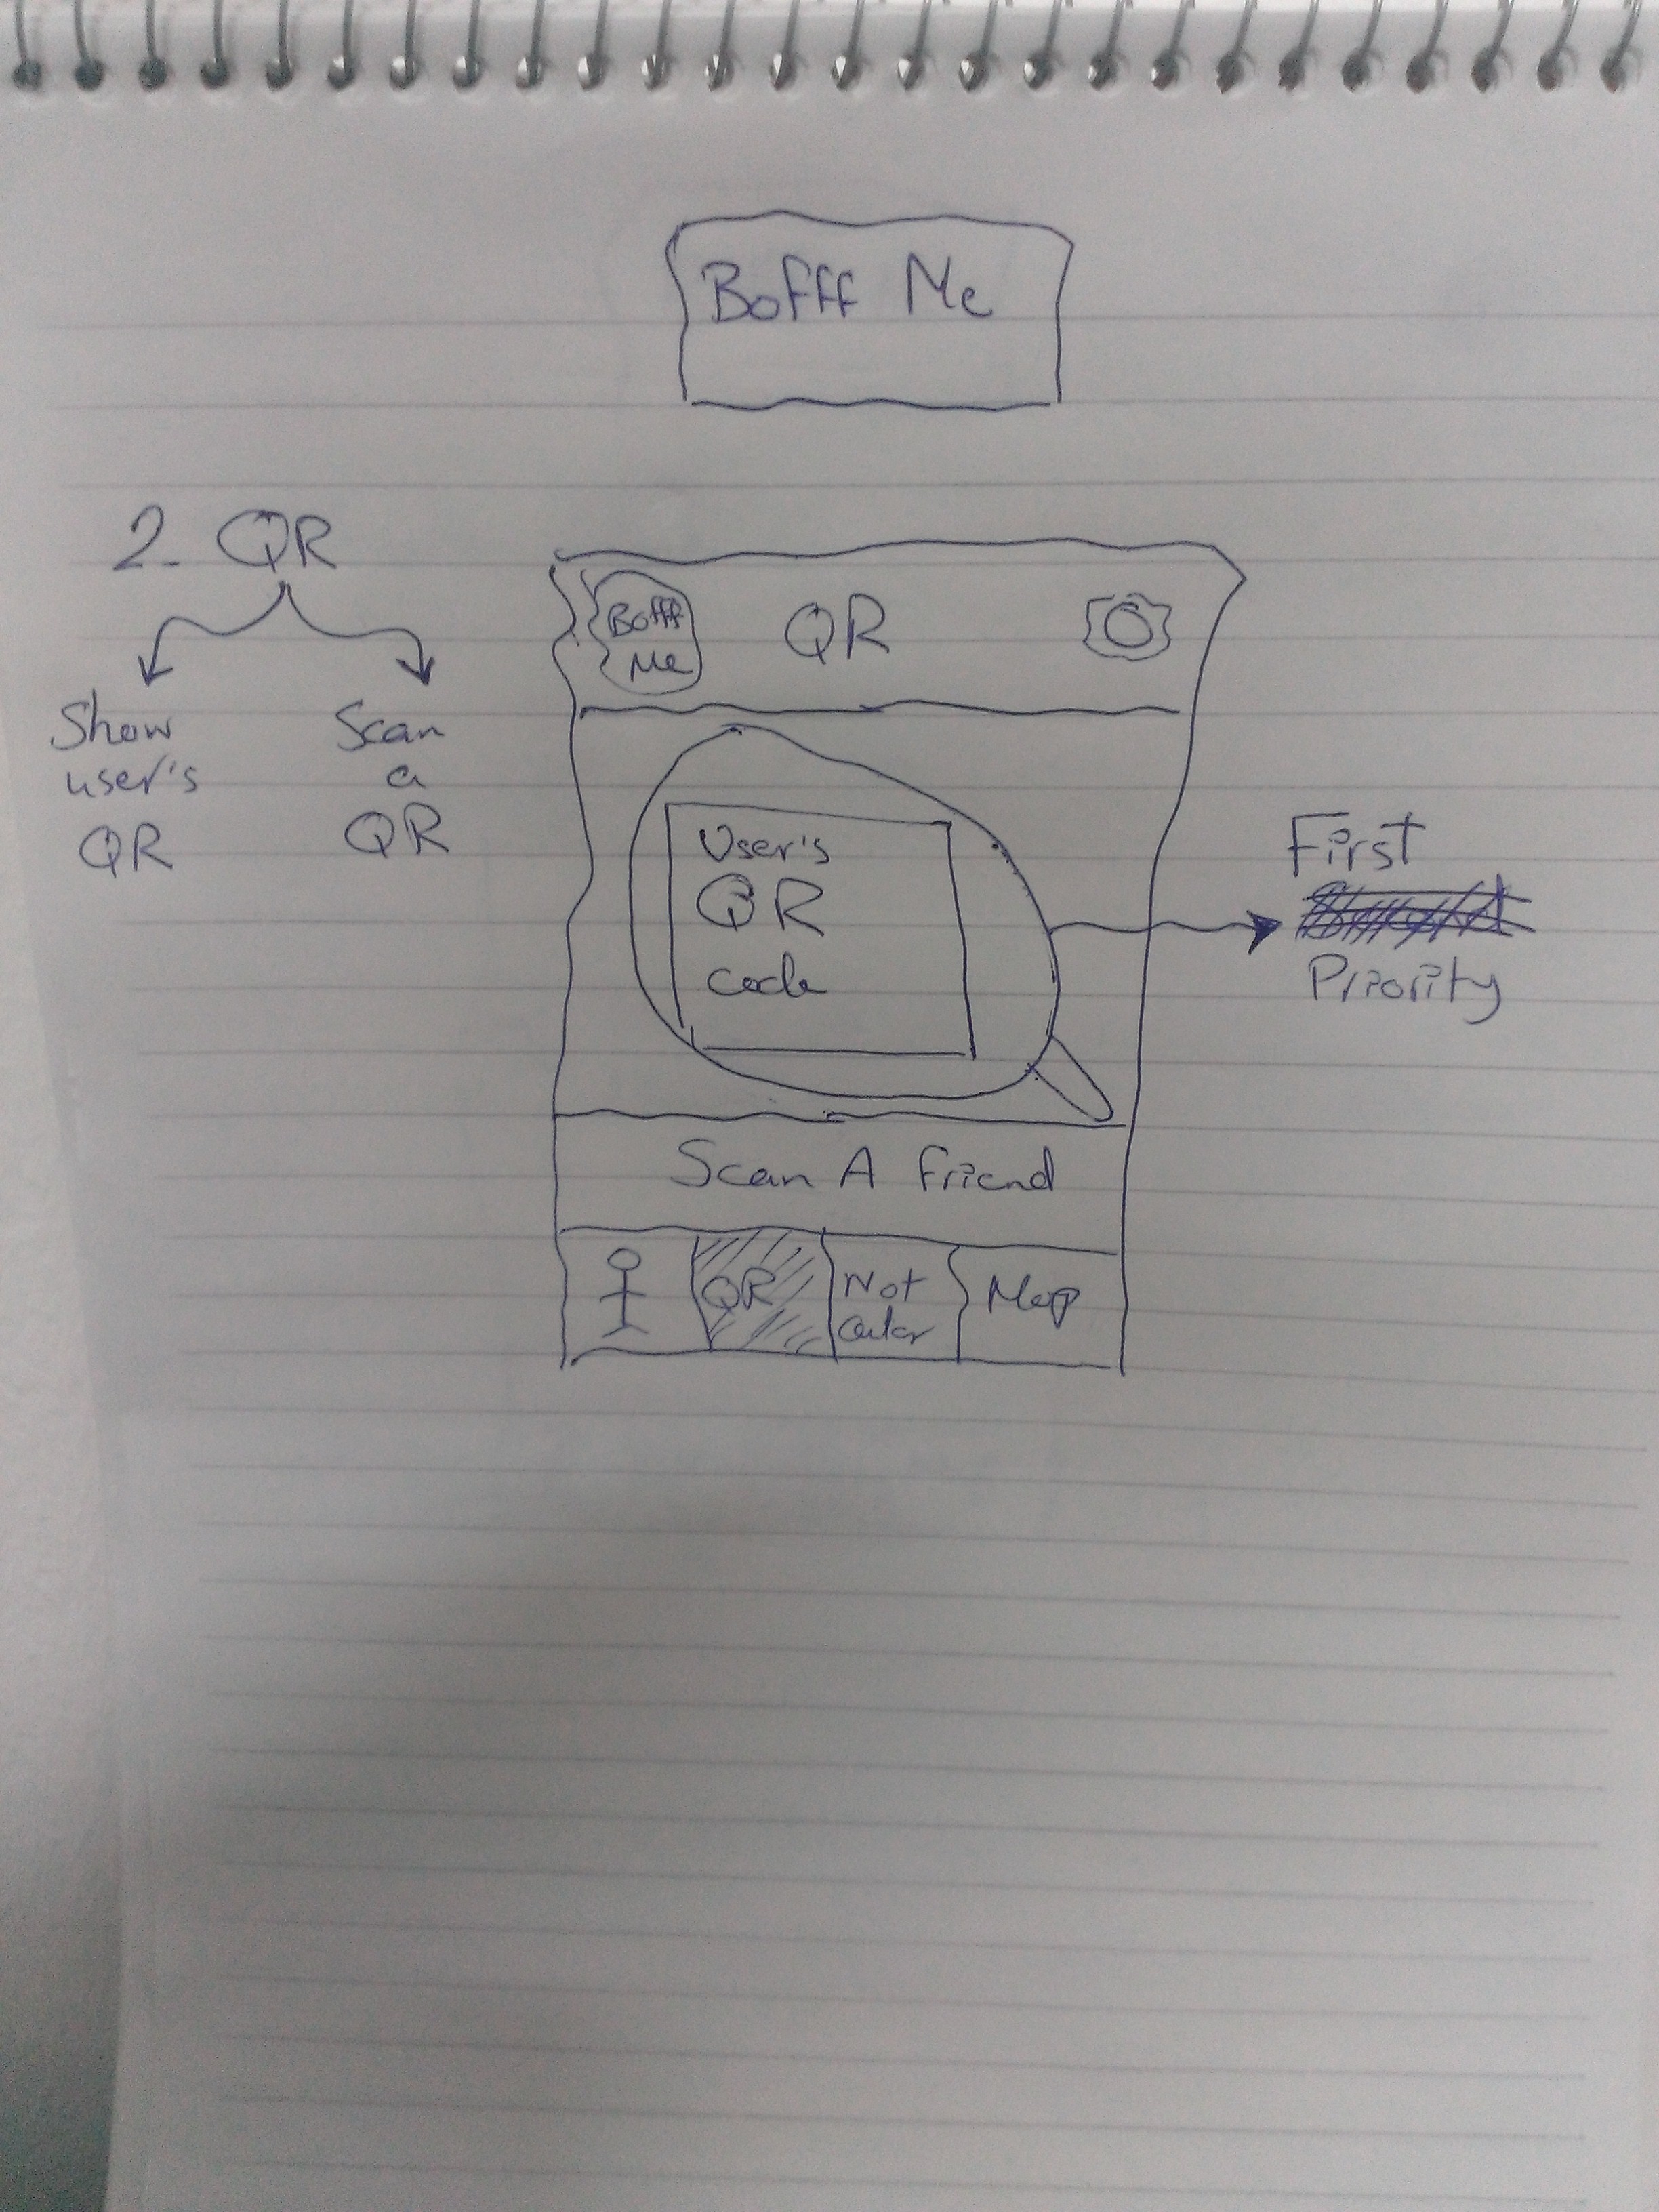 Bofff Me
2- QR
Show
user's
QR
Scan
a
QR
Bofff
Me
QR
User's
QR
code
First
Priority
Scan A friend
QR
Not
Map